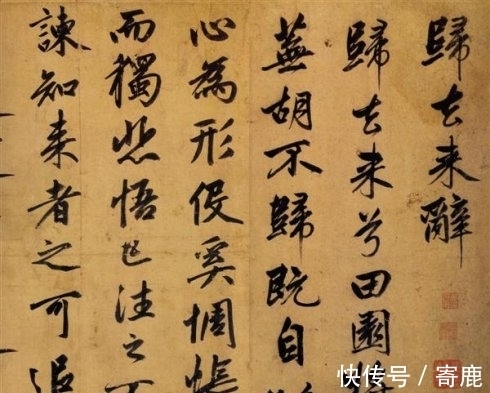 歸去来辭
歸去来兮田園将
蕪胡不歸既自
心為形役奚惆悵
而獨悲悟已往之不
諫知来者之可追
快传号 / 寄鹿